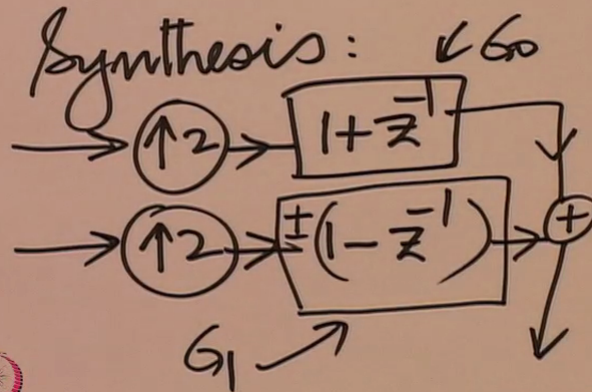 Synthesis: ↙ G₀
↑2 1 + z⁻¹
+
↑2 ±(1 - z⁻¹)
G₁